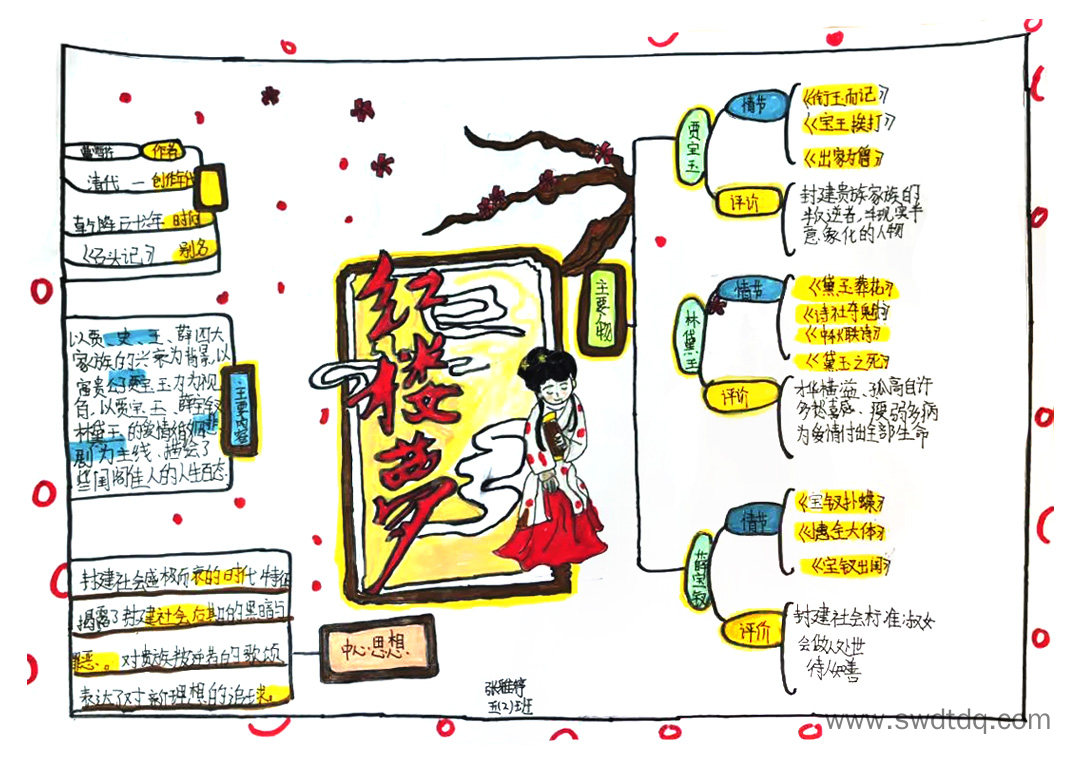 红楼梦
曹雪芹 作者
清代 — 创作年代
时间
别名
主要内容
以贾 史 王、薛四大
家族的兴衰为背景,以
富贵公子贾宝玉为视
角,以贾宝玉、薛宝钗
林黛玉的爱情婚姻悲
剧为主线,描绘了
些闺阁佳人的人生百态
封建社会盛极而衰的时代特征
揭露了封建社会后期的黑暗与
罪恶。对贵族叛逆者的歌颂
表达了对新理想的追球。
中心思想
主要人物
贾宝玉
情节
《衔玉而记》
《宝玉挨打》
《出家为僧》
评价
封建贵族家族的
叛逆者,
意象化的人物
林黛玉
情节
《黛玉葬花》
《诗社夺魁》
《中秋联诗》
《黛玉之死》
评价
才华横益、孤高自许
多愁善感、孱弱多病
为爱情付出全部生命
薛宝钗
情节
《宝钗扑蝶》
《惠全大体》
《宝钗出闺》
评价
封建社会标准淑女
会做人处世
待人和善
张雅婷
五(2)班
www.swdtdq.com